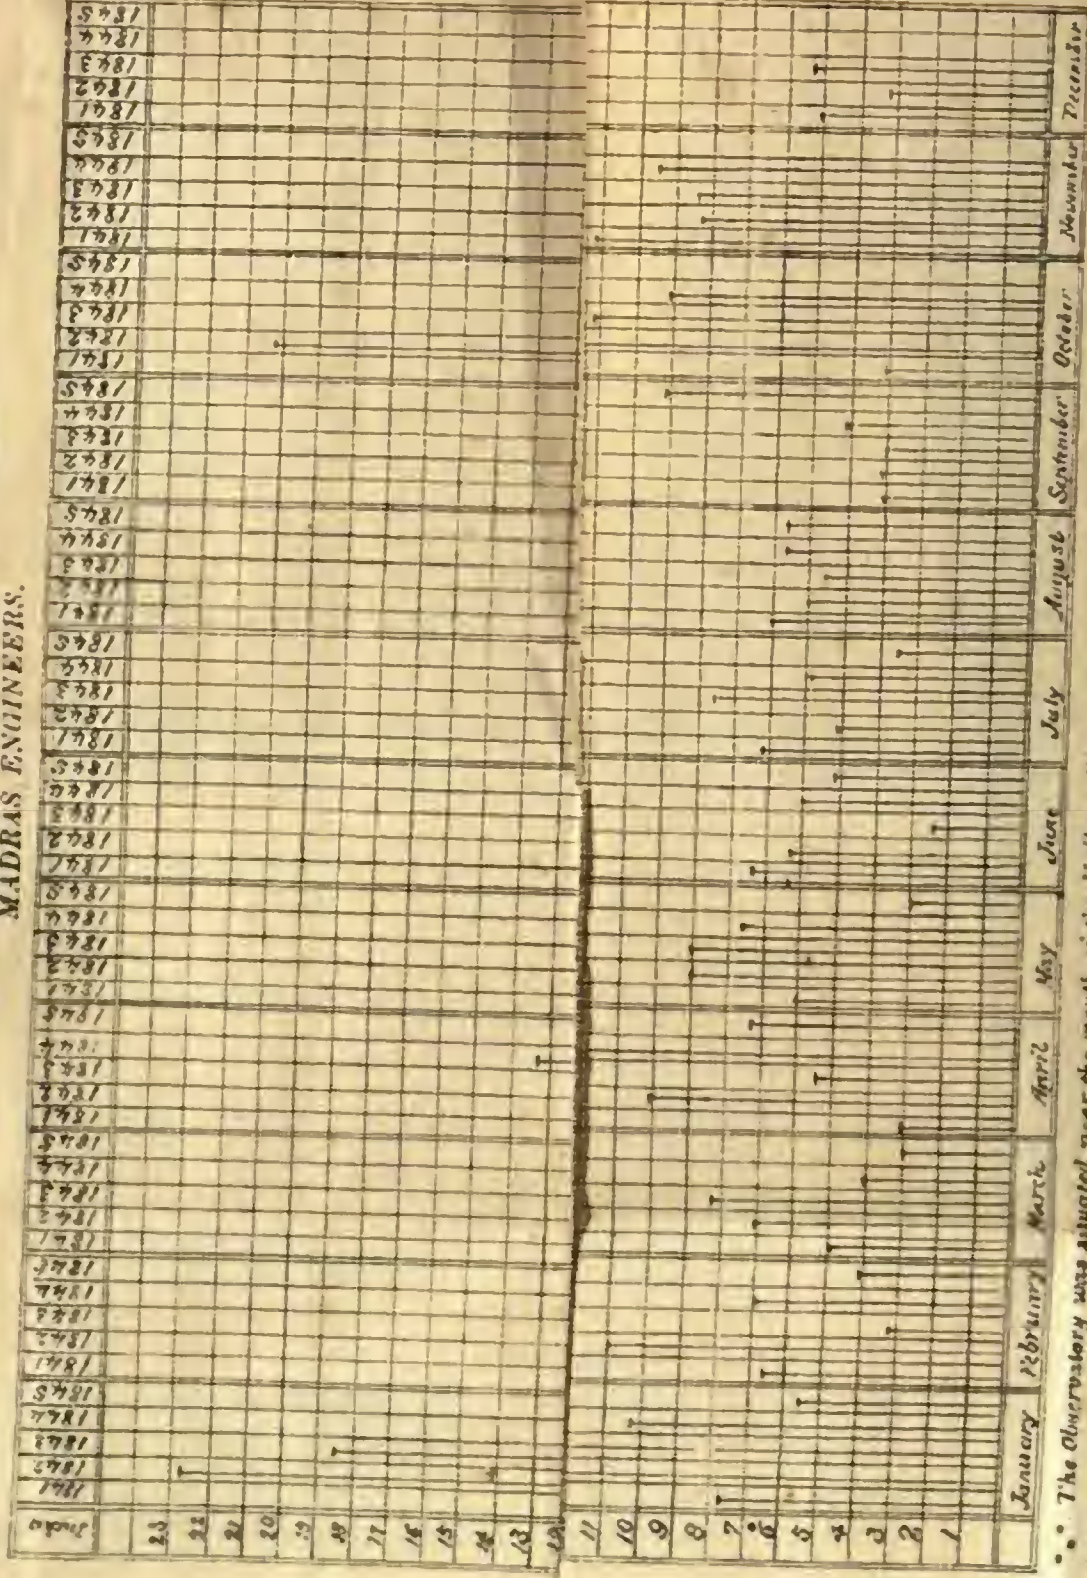 MADRAS ENGINEERS.
Inches
1841 1842 1843 1844 1845 1841 1842 1843 1844 1845 1841 1842 1843 1844 1845 1841 1842 1843 1844 1845 1841 1842 1843 1844 1845 1841 1842 1843 1844 1845 1841 1842 1843 1844 1845 1841 1842 1843 1844 1845 1841 1842 1843 1844 1845 1841 1842 1843 1844 1845 1841 1842 1843 1844 1845 1841 1842 1843 1844 1845
23
22
21
20
19
18
17
16
15
14
13
12
11
10
9
8
7
6
5
4
3
2
1
January February March April May June July August September October November December
The Observatory was situated near the